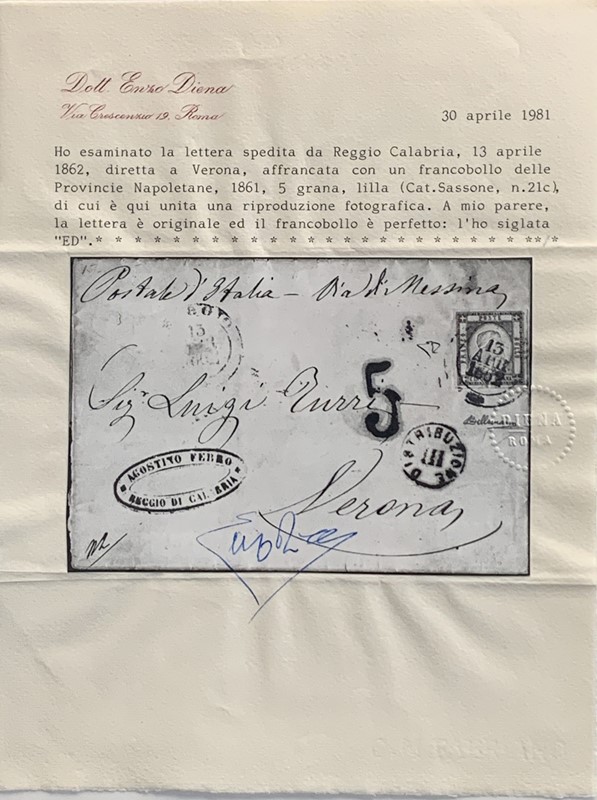 Dott. Enzo Diena
Via Crescenzio 19. Roma
30 aprile 1981
Ho esaminato la lettera spedita da Reggio Calabria, 13 aprile
1862, diretta a Verona, affrancata con un francobollo delle
Provincie Napoletane, 1861, 5 grana, lilla (Cat.Sassone, n.21c),
di cui è qui unita una riproduzione fotografica. A mio parere,
la lettera è originale ed il francobollo è perfetto: l'ho siglata
"ED".* * * * * * * * * * * * * * * * * * * * * * ** *
Postale d'Italia – Via di Messina
13
POSTE
13
APR
Sig. Luigi Turri
5
DIENA
ROMA
DISTRIBUZIONE
III
AGOSTINO FERRO
REGGIO DI CAL BRIA
Verona